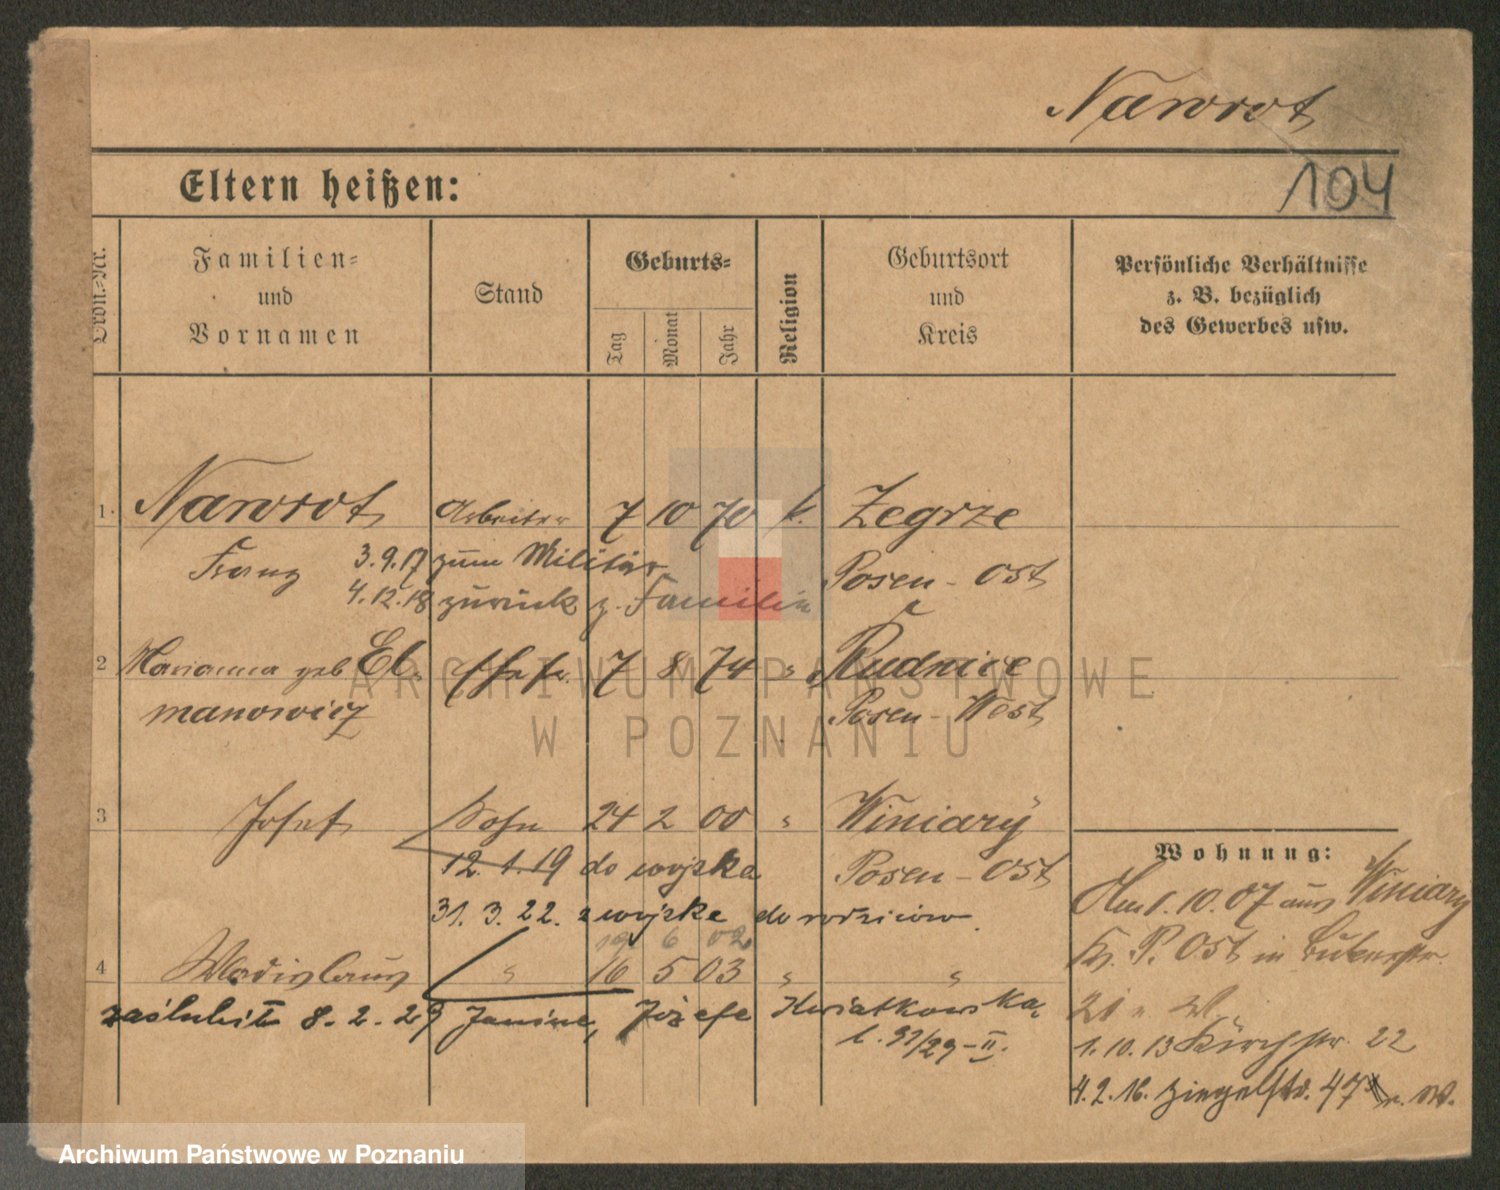 Nawrot
Eltern heißen:
104
Ordn.-Nr.
Familien-
und
Vornamen
Stand
Geburts-
Tag
Monat
Jahr
Religion
Geburtsort
und
Kreis
Persönliche Verhältnisse
z. B. bezüglich
des Gewerbes usw.
1. Nawrot Arbeiter 7 10 70 k. Zegrze
Franz 3.9.17 zum Militär Posen-Ost
4.12.18 zurück z. Familie
2 Marianna geb El- Ehefr. 7 8 74 " Rudnice
manowicz Posen-West
3 Josef Sohn 24 2 00 " Winiary
12.1.19 do wojska Posen-Ost
31.3.22. z wojska do rodziców.
19 6 02
4 Wladislaus " 16 5 03 " "
zaślubił 8.2.29 Janinę, Józefę Kwiatkowską,
l. 97/29-II.
Wohnung:
1.10.07 aus Winiary
Kr. P. Ost in
21
1.10.13 Kirchstr. 22
4.2.16. Ziegelstr. 47 n. W.
ARCHIWUM PAŃSTWOWE
W POZNANIU
Archiwum Państwowe w Poznaniu